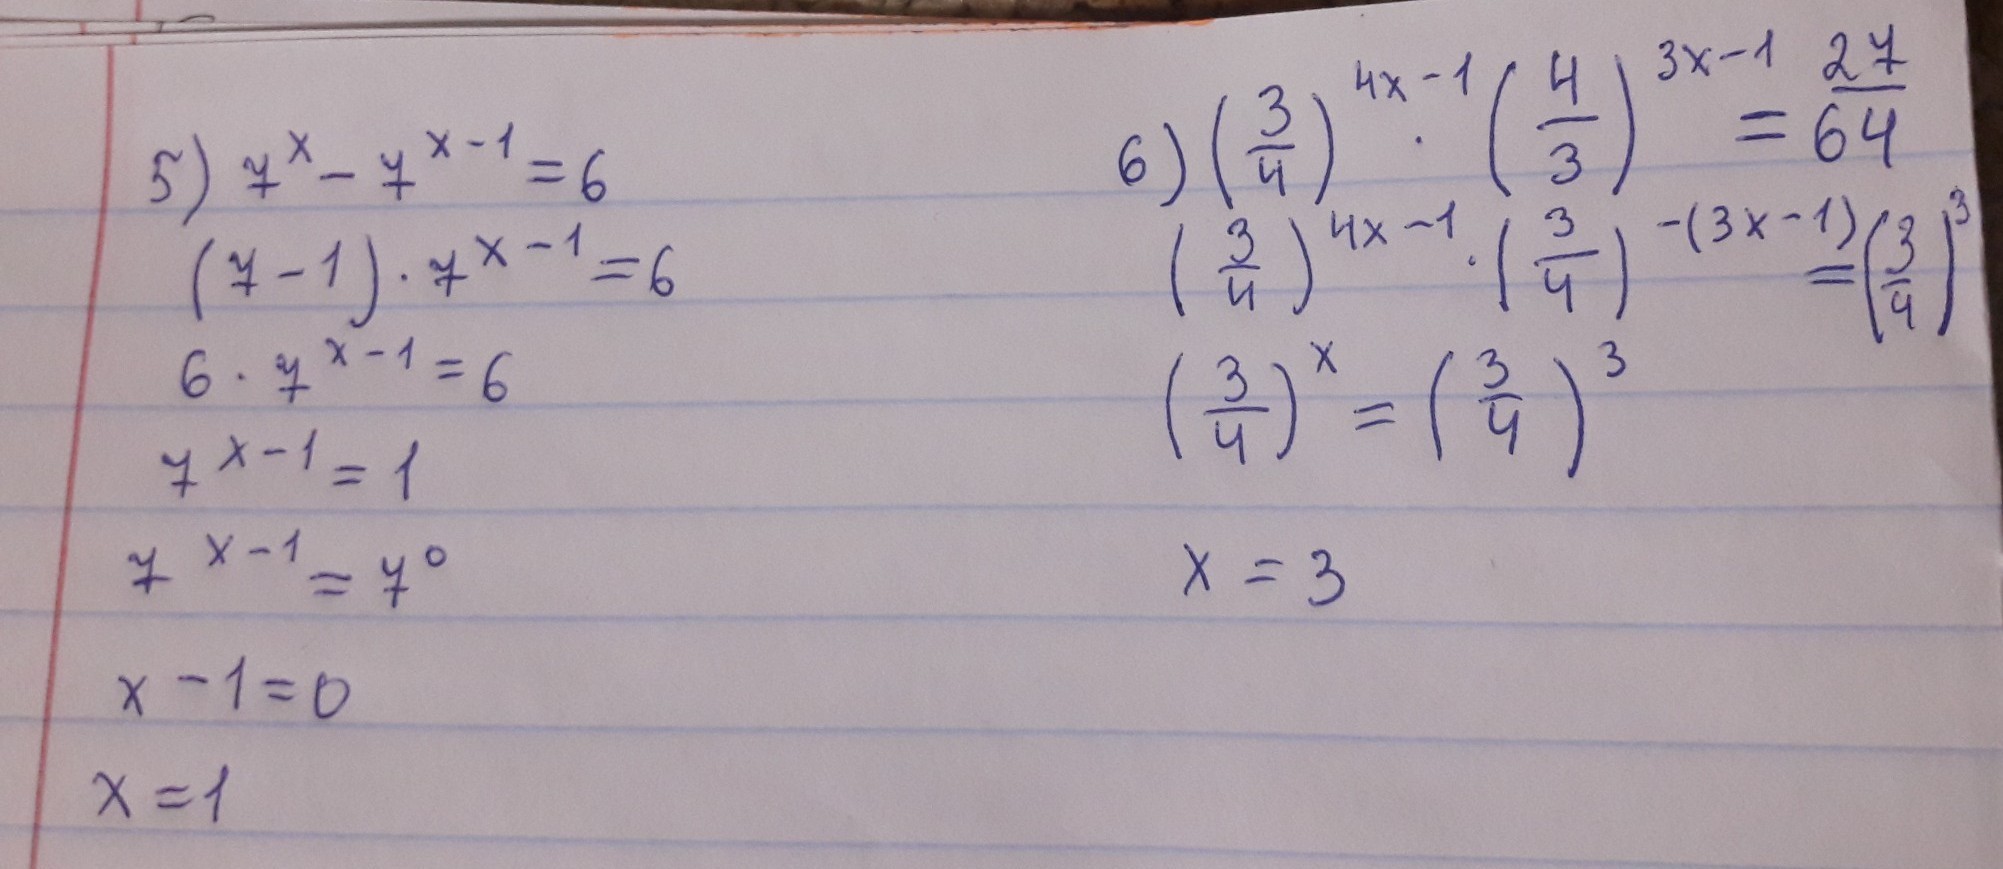 5) 7^x - 7^(x-1) = 6
(7-1) · 7^(x-1) = 6
6 · 7^(x-1) = 6
7^(x-1) = 1
7^(x-1) = 7^0
x - 1 = 0
x = 1
6) (3/4)^(4x-1) · (4/3)^(3x-1) = 27/64
(3/4)^(4x-1) · (3/4)^(-(3x-1)) = (3/4)^3
(3/4)^x = (3/4)^3
x = 3